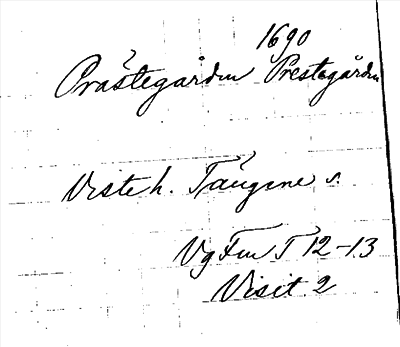 1690
Prästegården Prestegården
Viste h. Tängene s.
Vg Fm T 12-13
Visit. 2